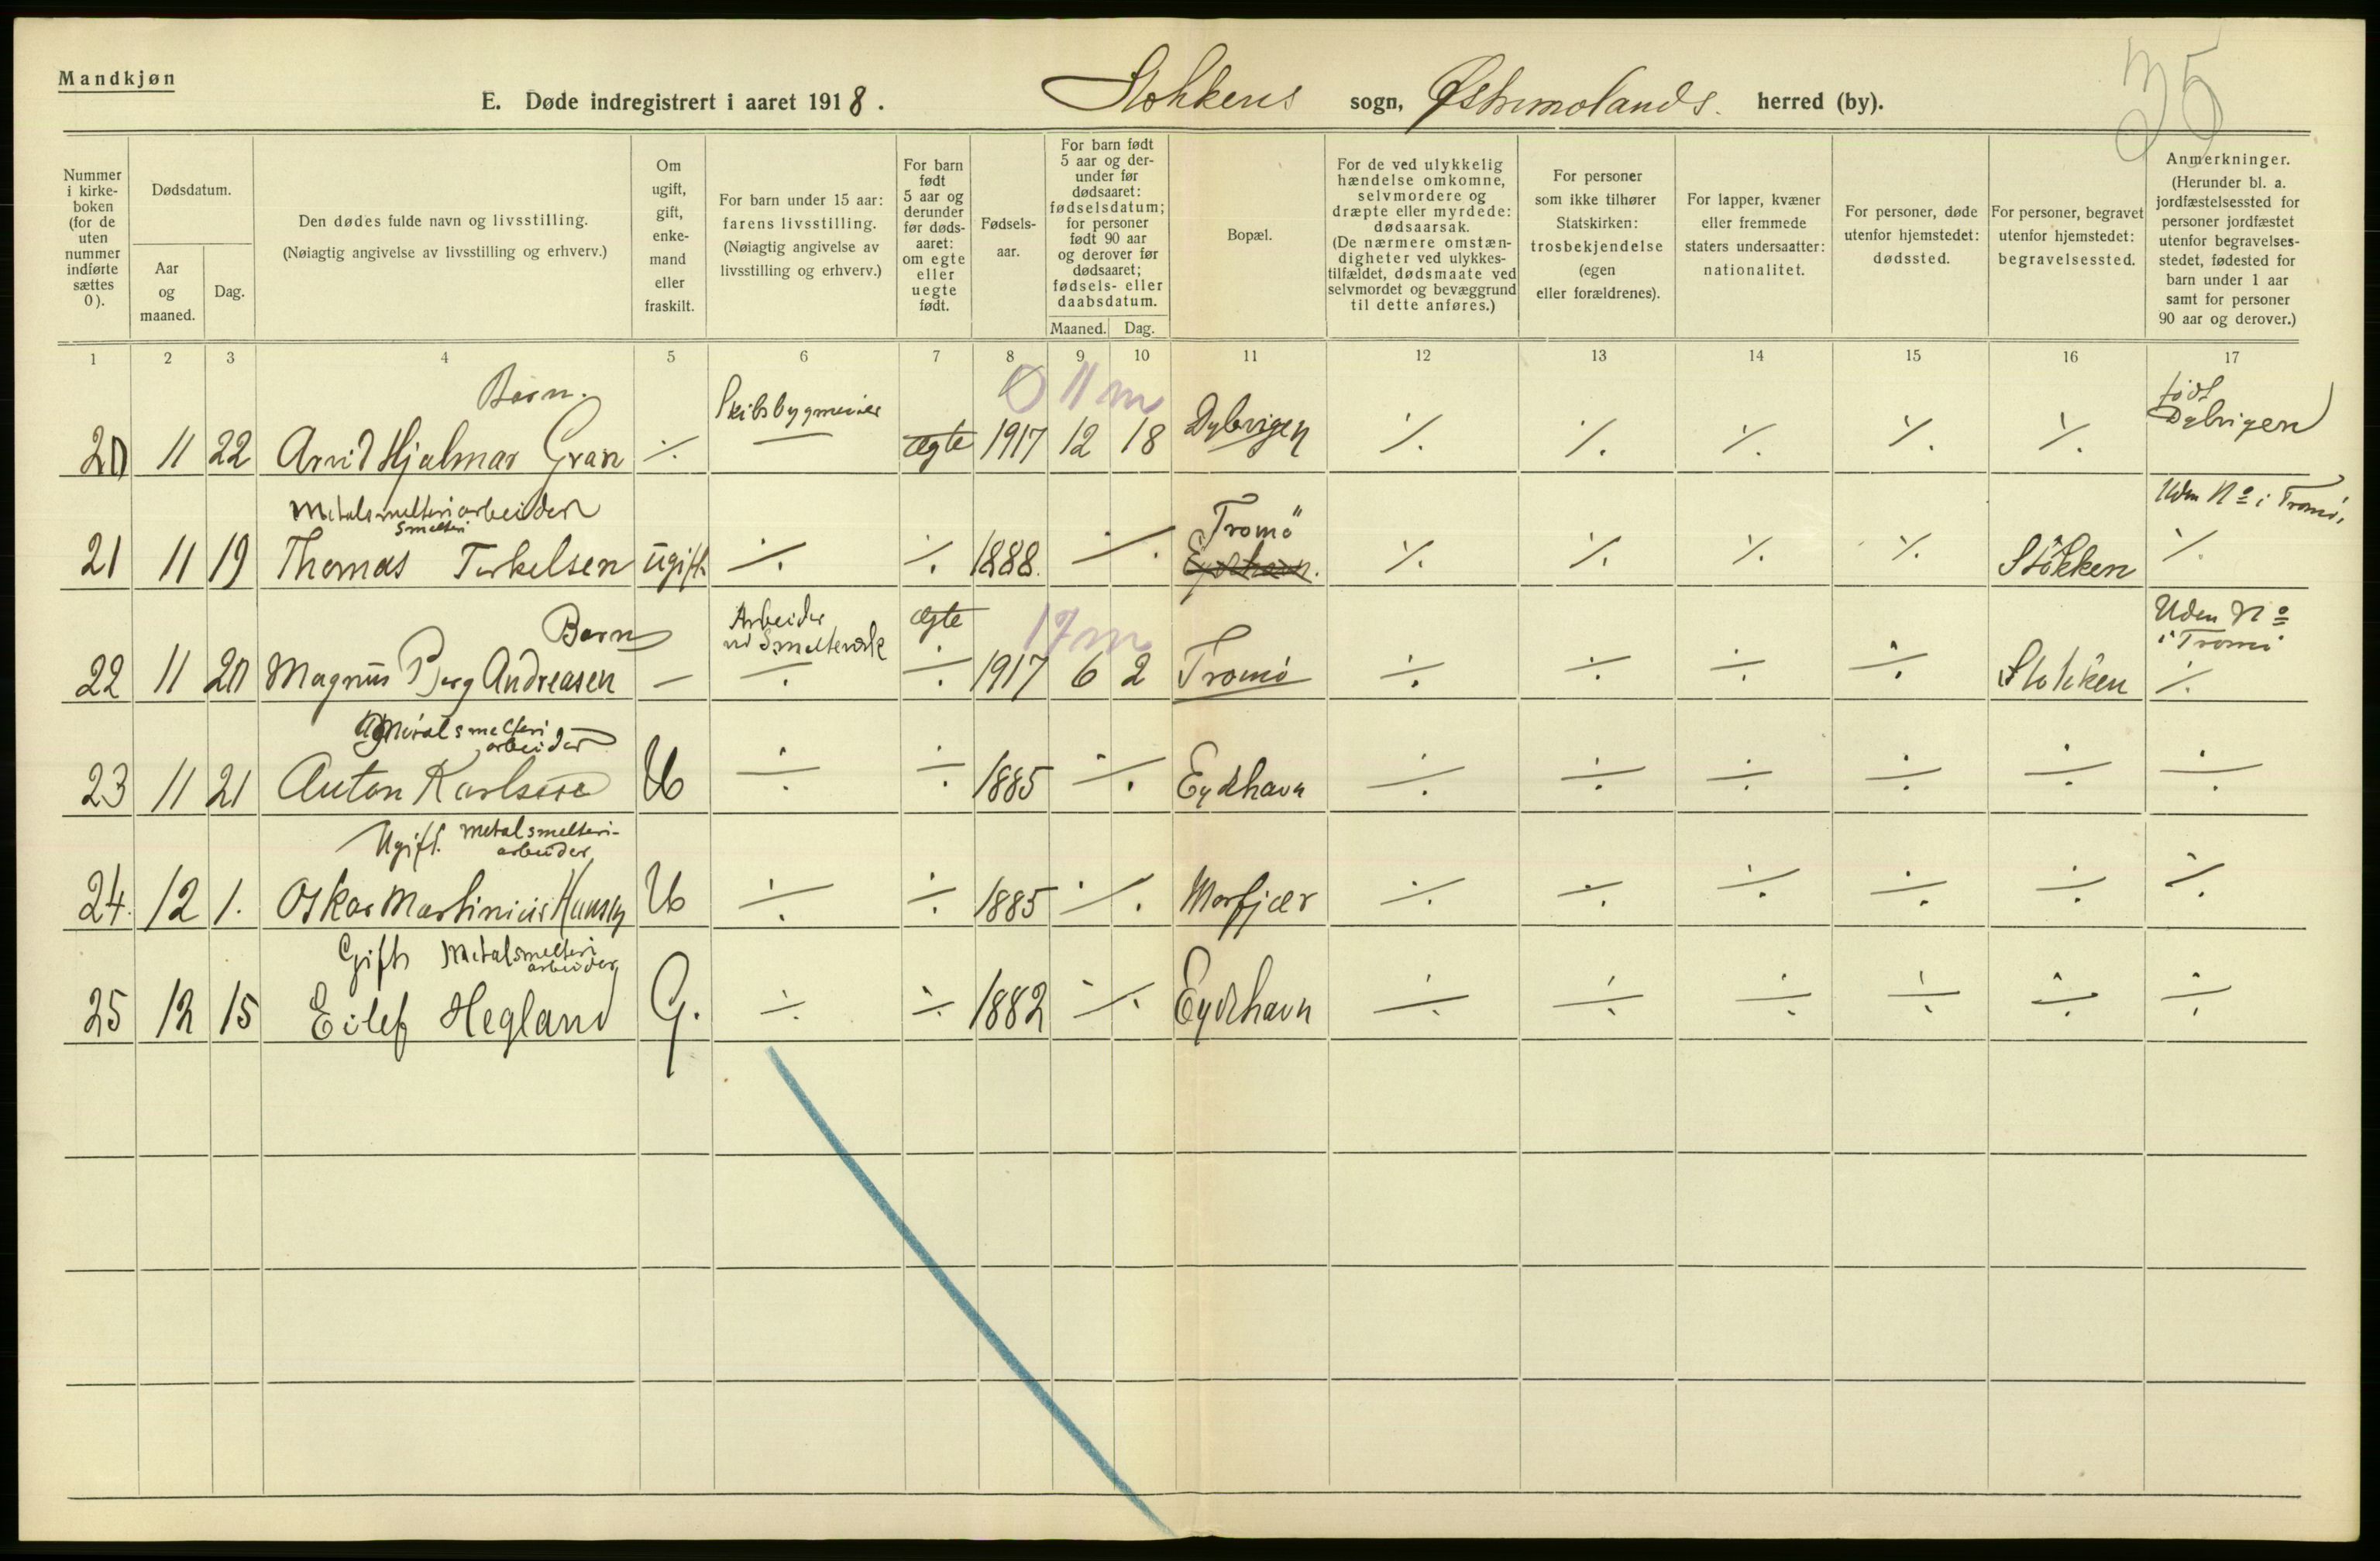 Mandkjøn
E. Døde indregistrert i aaret 1918. Stokkens sogn, Østremolands. herred (by).
35
Nummer i kirke- boken (for de uten nummer indførte sættes 0).
Dødsdatum.
Aar og maaned.
Dag.
Den dødes fulde navn og livsstilling.
(Nøiagtig angivelse av livsstilling og erhverv.)
Om ugift, gift, enke- mand eller fraskilt.
For barn under 15 aar: farens livsstilling.
(Nøiagtig angivelse av livsstilling og erhverv.)
For barn født 5 aar og derunder før døds- aaret: om egte eller uegte født.
Fødsels- aar.
For barn født 5 aar og der- under før dødsaaret: fødselsdatum; for personer født 90 aar og derover før dødsaaret; fødsels- eller daabsdatum.
Maaned. Dag.
Bopæl.
For de ved ulykkelig hændelse omkomne, selvmordere og dræpte eller myrdede: dødsaarsak.
(De nærmere omstæn- digheter ved ulykkes- tilfældet, dødsmaate ved selvmordet og bevæggrund til dette anføres.)
For personer som ikke tilhører Statskirken: trosbekjendelse (egen eller forældrenes).
For lapper, kvæner eller fremmede staters undersaatter: nationalitet.
For personer, døde utenfor hjemstedet: dødssted.
For personer, begravet utenfor hjemstedet: begravelsessted.
Anmerkninger.
(Herunder bl. a. jordfæstelsessted for personer jordfæstet utenfor begravelses- stedet, fødested for barn under 1 aar samt for personer 90 aar og derover.)
1 2 3 4 5 6 7 8 9 10 11 12 13 14 15 16 17
Barn. Skibsbygmester 0 11 m født
20 11 22 Arvid Hjalmar Gran ⁒ — ægte 1917 12 18 Dybvigen ⁒ ⁒ ⁒ ⁒ ⁒ Dybvigen
Metalsmelteriarbeider Tromø Uden Nº i Tromø,
smelteri
21 11 19 Thomas Terkelsen ugift ⁒ ⁒ 1888. ⁒ Eydehavn. ⁒ ⁒ ⁒ ⁒ Stokken ⁒
Barn Arbeider ved Smelteverk ægte 17 m Uden Nº i Tromø
22 11 20 Magnus Berg Andreasen — ÷ ÷ 1917 6 2 Tromø ÷ ÷ ÷ ÷ Stokken ⁒
Metalsmelteri arbeider
23 11 21 Anton Karlsen U ÷ ÷ 1885 ⁒ Eydehavn ÷ ÷ ÷ ÷ ÷ ÷
Ugift. Metalsmelteri- arbeider
24. 12 1. Oskar Martinius Hansen U ÷ ÷ 1885 ⁒ Morfjær ÷ ÷ ÷ ÷ ÷ ⁒
Gift Metalsmelteri arbeider
25 12 15 Eilef Hegland G. ÷ ÷ 1882 ⁒ Eydehavn ÷ ÷ ÷ ÷ ÷ ÷